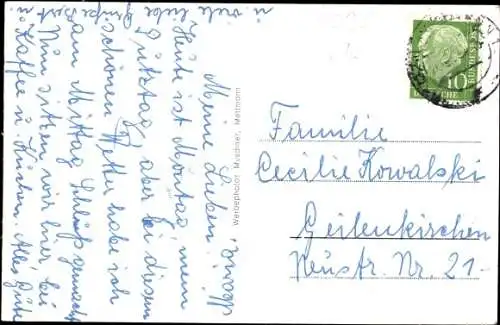 Meine Lieben!
Heute ist Montag, mein
Putztag, aber bei diesem
schönen Wetter habe ich
am Mittag Schluß gemacht
Nun sitzen wir hier bei
Kaffee u. Kuchen. Alles Gute
u. viele liebe
Werbephoto Meidner, Mettmann
Familie
Cecilie Kowalski
Geilenkirchen
Neustr. Nr. 21
10
DEUTSCHE
BUNDESPOST